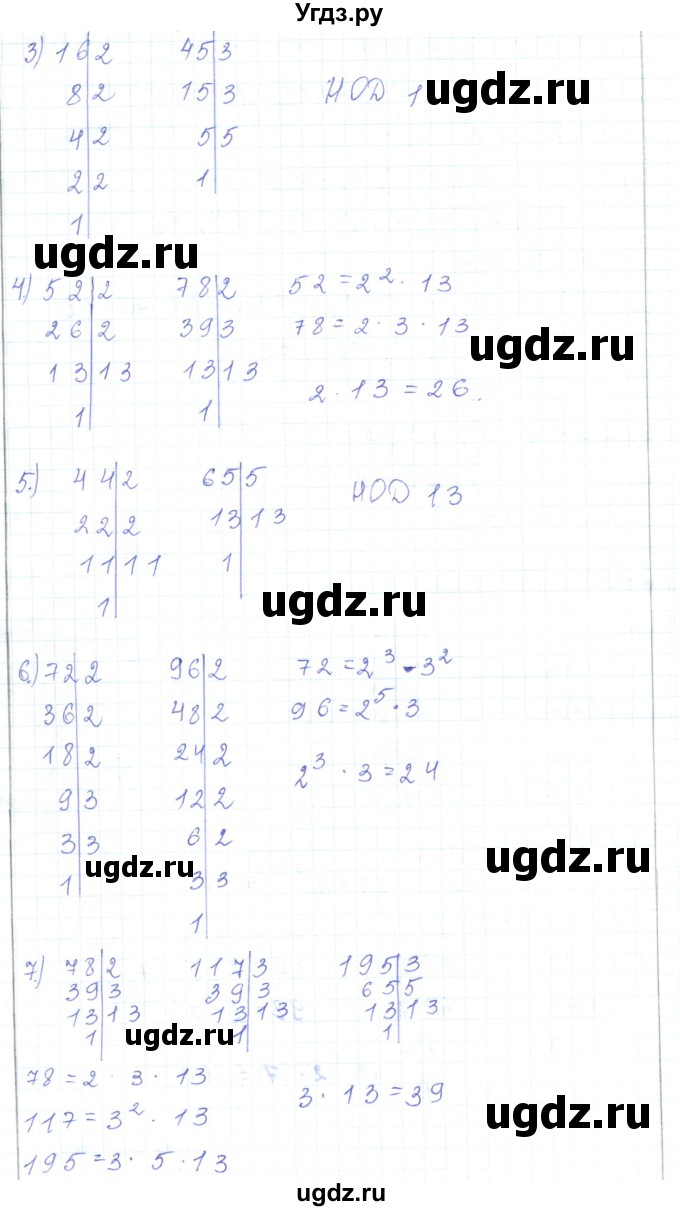 Угдз.ру
3) 16|2 45|3
8|2 15|3 НОД 1
ugdz.ru
4|2 5|5
2|2 1
1
ugdz.ru
4) 52|2 78|2 52=2²·13
26|2 39|3 78=2·3·13
ugdz.ru
13|13 13|13
1 1 2·13=26.
5.) 44|2 65|5 НОД 13
22|2 13|13
11|11 1
1
ugdz.ru
6.) 72|2 96|2 72=2³·3²
36|2 48|2 96=2⁵·3
18|2 24|2
9|3 12|2 2³·3=24
3|3 6|2
ugdz.ru
ugdz.ru
1 3|3
1
7.) 78|2 117|3 195|3
39|3 39|3 65|5
13|13 13|13 13|13
1 1 1
ugdz.ru
78=2·3·13
117=3²·13 3·13=39
ugdz.ru
195=3·5·13
ugdz.ru